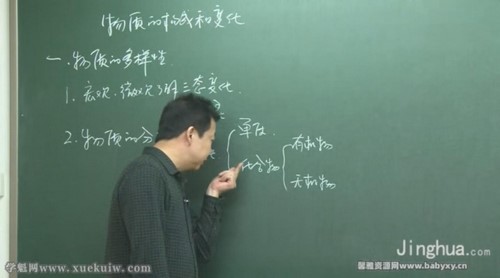 物质的构成和变化
一.物质的多样性
1.宏观.微观了解三态变化
2.物质的分
单质
化合物
有机物
无机物
学魁网 www.xuekuiw.com
Jinghua.com
馨雅资源网www.babyxy.cn